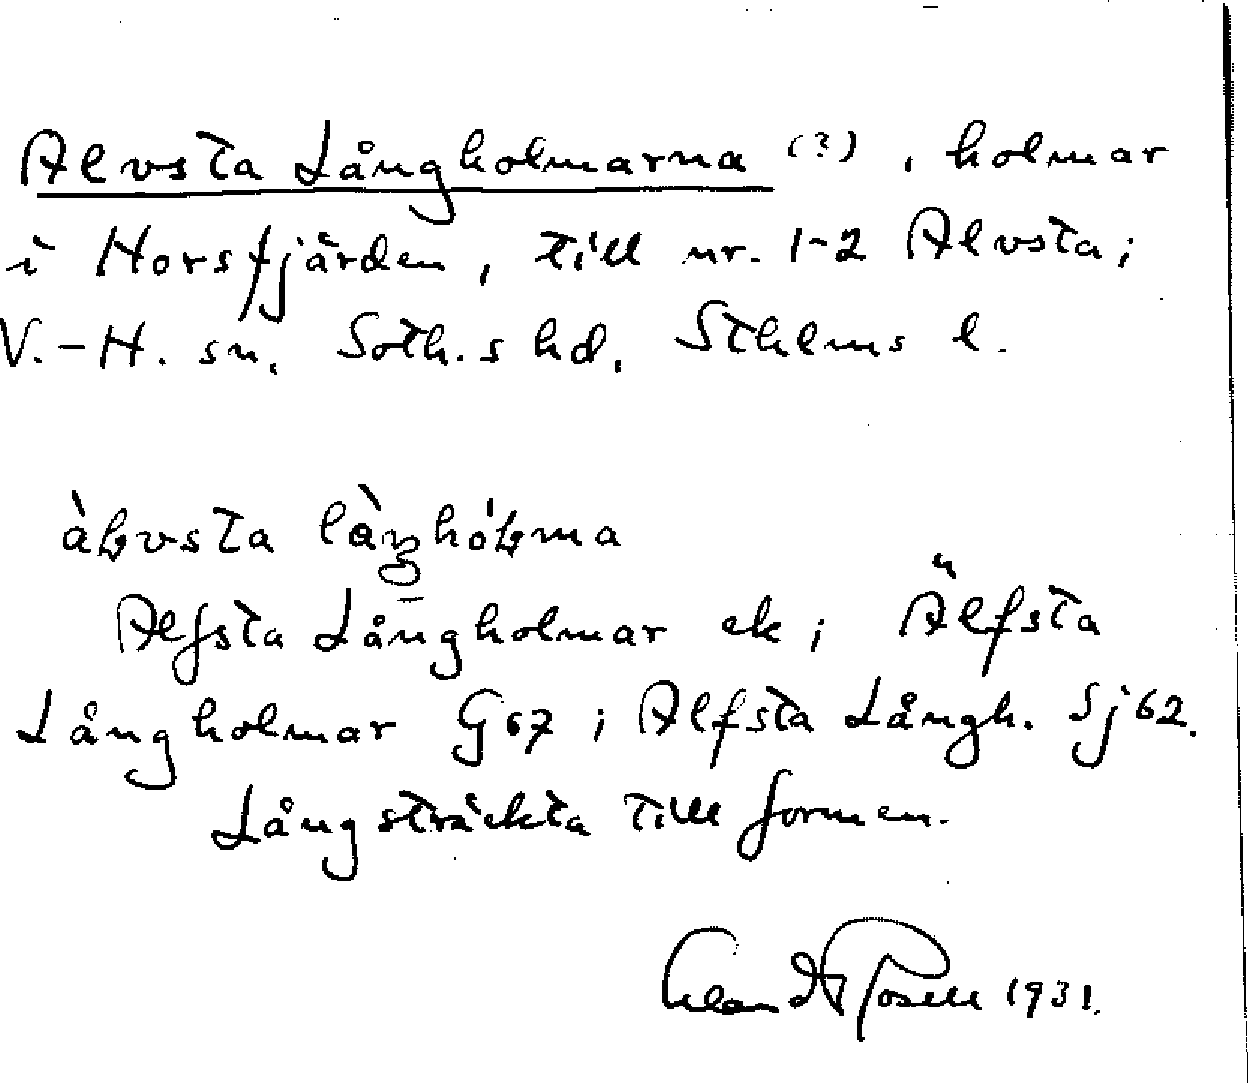 Alvsta Långholmarna (?), holmar
i Horsfjärden, till nr. 1-2 Alvsta;
V.-H. sn. Soth.s hd. Sthlms l.
Alfsta Långholmar ek; Älfsta
Långholmar G67; Alfsta Långh. Sj 62.
Långsträckta till formen.
1931.